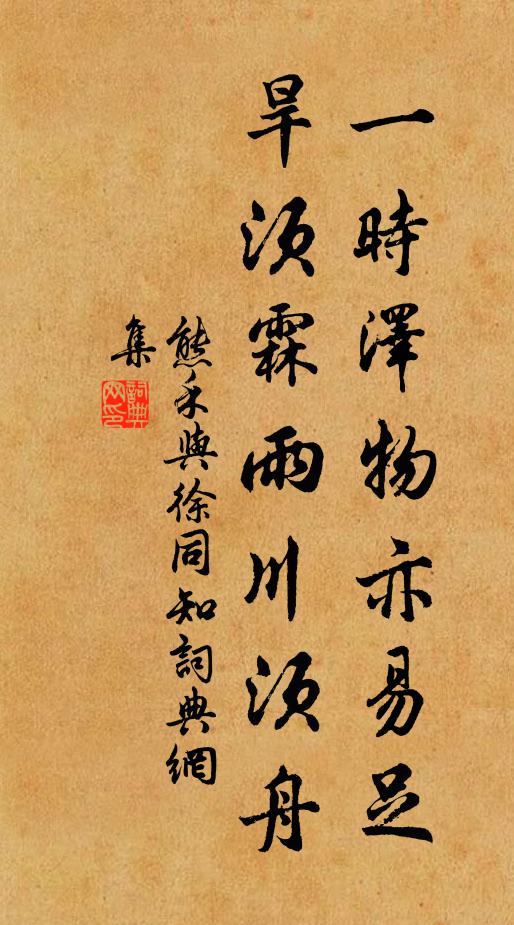 一時澤物亦易足
旱須霖雨川須舟
熊禾與徐同知詞典網
集
詞典網印